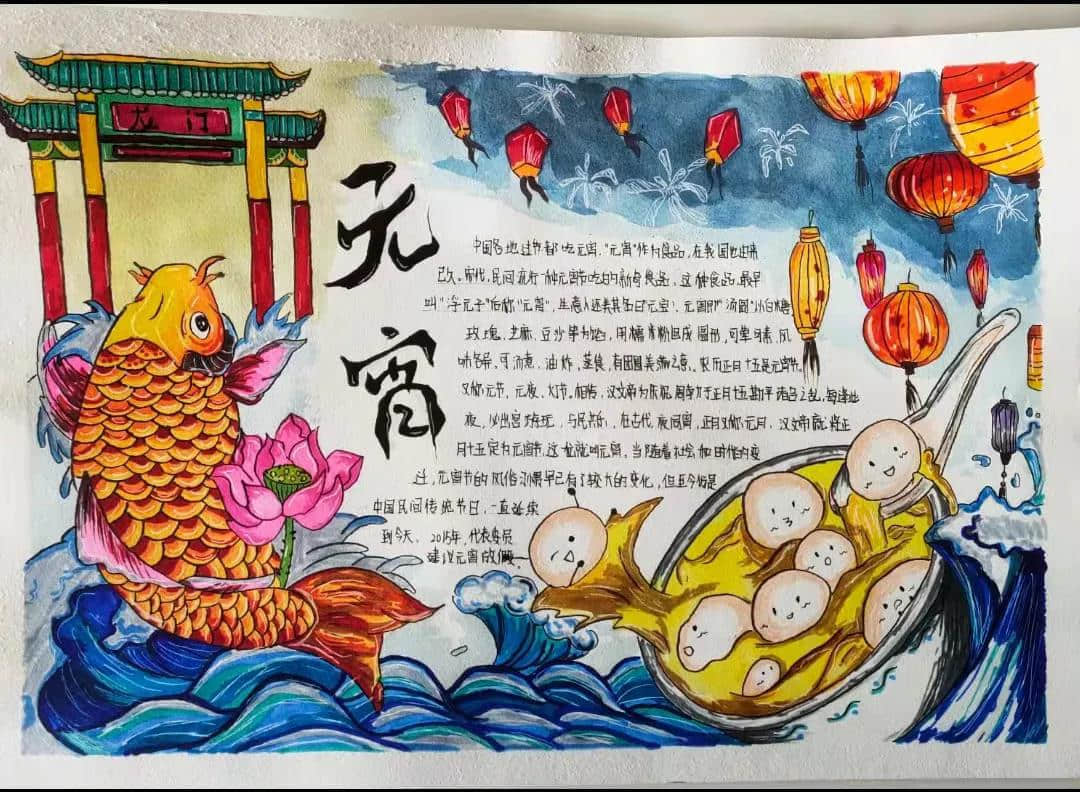 龙门
元宵
中国各地过节都吃元宵,"元宵"作为食品,在我国也由来
已久。宋代,民间流行一种元宵节吃的新奇食品。这种食品,最早
叫"浮元子"后称"元宵",生意人还美其名曰元宝。元宵即"汤圆"以白糖
玫瑰、芝麻、豆沙等为馅,用糯米粉包成圆形,可荤可素,风
味各异。可汤煮、油炸、蒸食,有团圆美满之意。农历正月十五是元宵节
又称元节、元夜、灯节。相传,汉文帝为庆祝周勃于正月十五勘平诸吕之乱,每逢此
夜,必出宫游玩,与民共乐,在古代,夜同宵,正月又称元月,汉文帝就将正
月十五定为元宵节,这夜就叫元宵。当随着社会和时代的变
迁,元宵节的风俗习惯早已有了较大的变化,但至今仍是
中国民间传统节日,一直延续
到今天、2015年,代表委员
建议元宵放假。